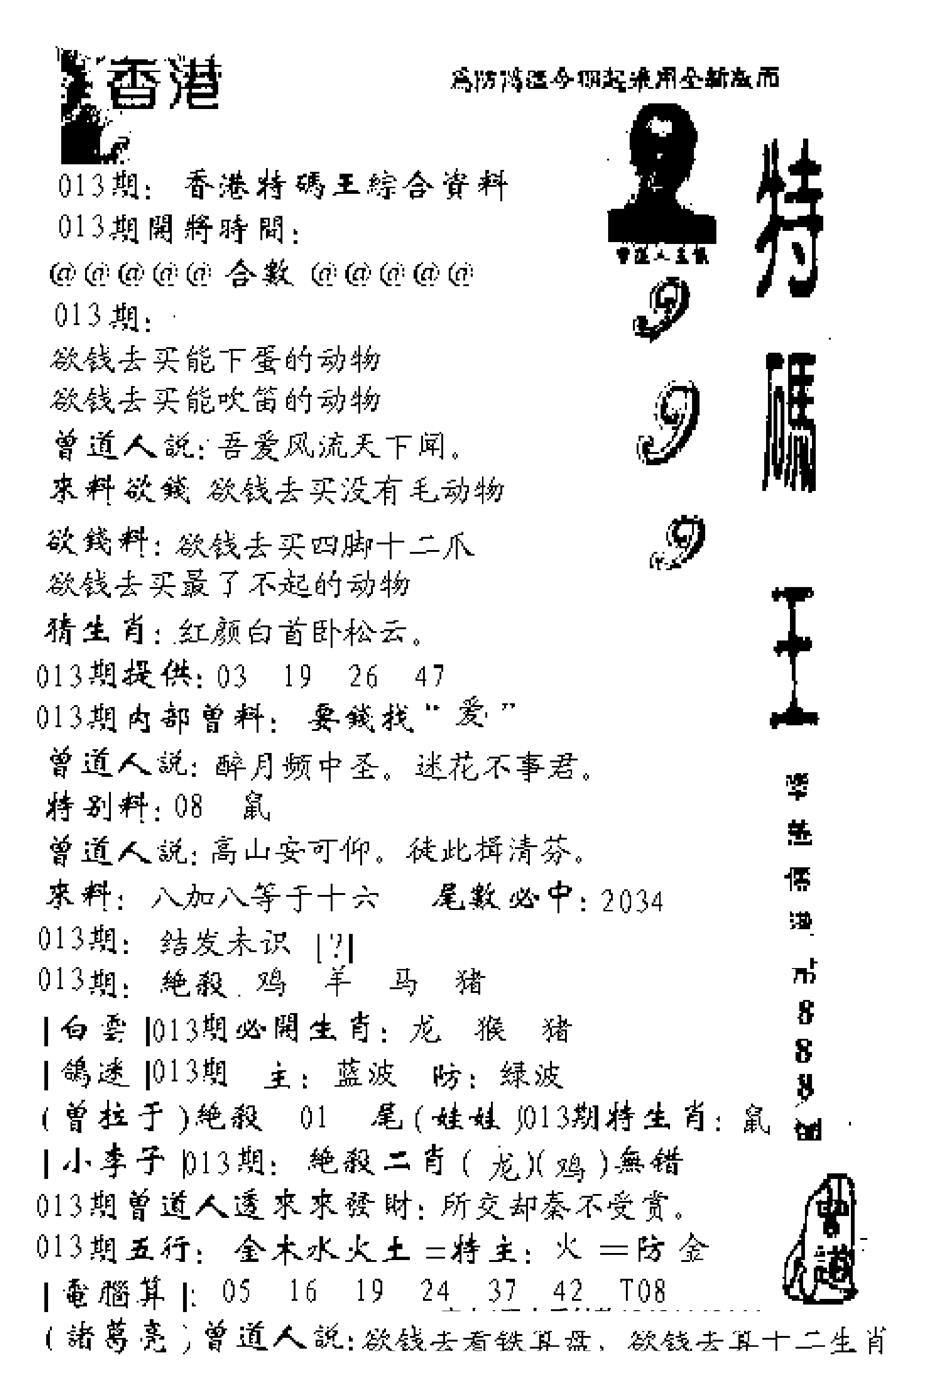 香港
為防偽造今期起采用全新版面
013期: 香港特碼王綜合資料
013期開將時間:
@@@@@合數@@@@@
013期:
欲钱去买能下蛋的动物
欲钱去买能吹笛的动物
曾道人説:吾爱风流天下闻。
來料欲錢 欲钱去买没有毛动物
欲錢料:欲钱去买四脚十二爪
欲钱去买最了不起的动物
猜生肖:红颜白首卧松云。
013期提供:03 19 26 47
013期内部曾料: 要錢找“爱”
曾道人説:醉月频中圣。迷花不事君。
特别料:08 鼠
曾道人説:高山安可仰。徒此揖清芬。
來料: 八加八等于十六 尾數必中:2034
013期: 结发未识 |?|
013期: 絶殺 鸡 羊 马 猪
|白雲|013期必開生肖:龙 猴 猪
|鴿迷|013期 主:蓝波 防:绿波
(曾拉于)絶殺 01 尾(娃娃)013期特生肖:鼠
|小李子|013期: 絶殺二肖(龙)(鸡)無错
013期曾道人透來來發財:所交却秦不受赏。
013期五行: 金木水火土=特主:火 =防金
|電腦算|: 05 16 19 24 37 42 T08
(諸葛亮)曾道人説:欲钱去看铁算盘,欲钱去算十二生肖
曾道人主儀
9
9
9
特
碼
王
港
8
8
8
曾道